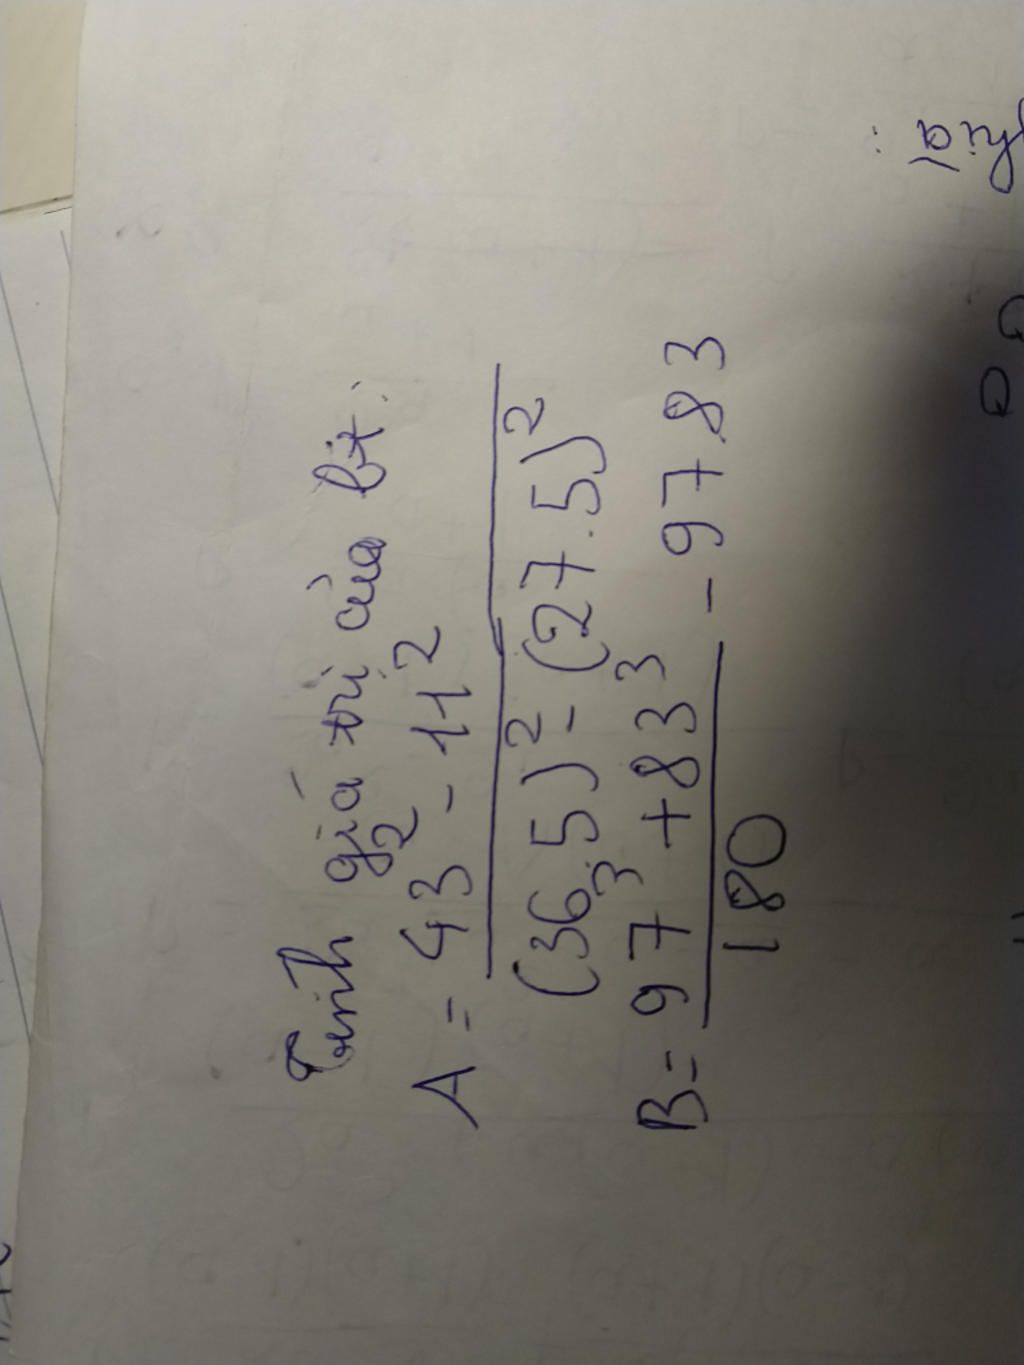 Tính giá trị của bt:
A = 43² - 11²
(36,5)² - (27.5)²
B = 97³ + 83³ - 97.83
180